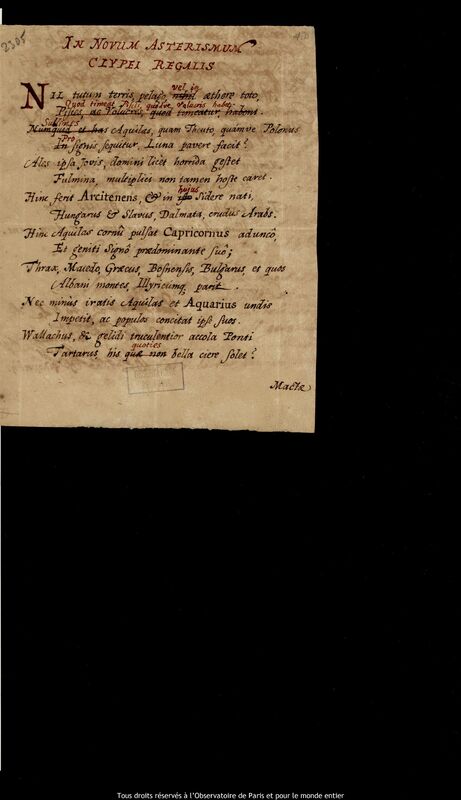 2305
IN NOVUM ASTERISMUM
CLYPEI REGALIS
vel in
NIL tutum terris, pelago, æthere toto,
Quod timeat Pisis, quodve volucris habet
Pisces, ac Volucres, quod timeatur, habent.
Sublimes
Numquid et has Aquilas, quam Theuto, quamve Polonus
Pro
In signis sequitur, Luna pavere facit?
Ales ipsa Jovis, domini licet horrida gestet
Fulmina, multiplici non tamen hoste caret.
hujus
Hinc ferit Arcitenens, & in Sidere nati,
Hungarus & Slavus, Dalmata, crudus Arabs.
Hinc Aquilas cornu pulsat Capricornus adunco,
Et geniti Signô prædominante suô;
Thrax, Macedo, Græcus, Bosnensis, Bulgarus, et quos
Albani montes, Illyricumq; parit.
Nec minus iratis Aquilas et Aquarius undis
Impetit, ac populos concitat ipse suos.
Wallachus, & gelidi truculentior accola Ponti
quoties
Tartarus, his quæ non bella ciere solet?
Macte
Tous droits réservés à l'Observatoire de Paris et pour le monde entier